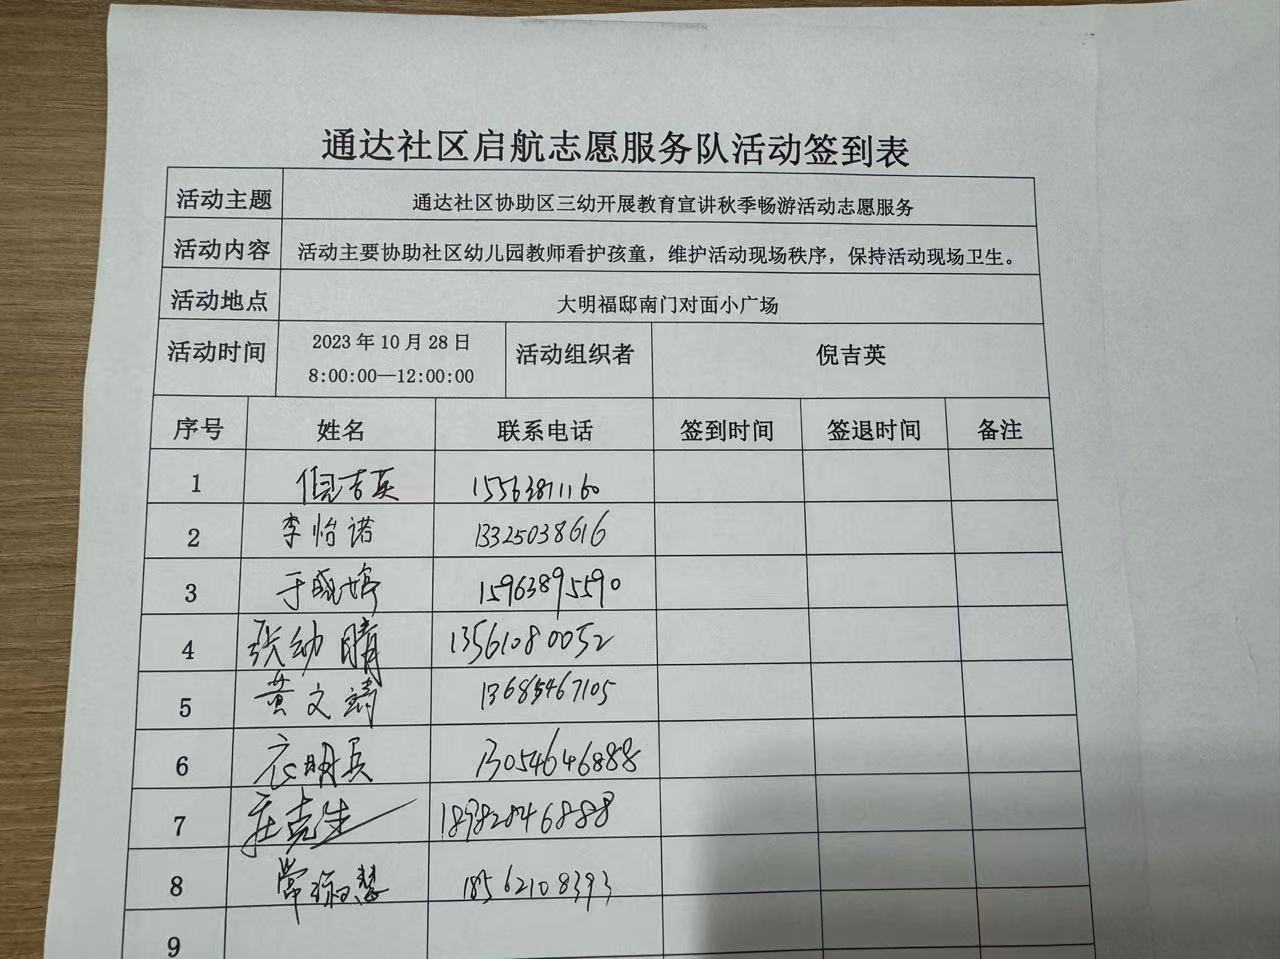 通达社区启航志愿服务队活动签到表
活动主题 通达社区协助区三幼开展教育宣讲秋季畅游活动志愿服务
活动内容 活动主要协助社区幼儿园教师看护孩童，维护活动现场秩序，保持活动现场卫生。
活动地点 大明福邸南门对面小广场
活动时间 2023年10月28日 8:00:00—12:00:00 活动组织者 倪吉英
序号 姓名 联系电话 签到时间 签退时间 备注
1 倪吉英 15563871160
2 李怡诺 13325038616
3 于晓婷 15963895590
4 张幼晴 13561080052
5 黄文靖 13685467105
6 衣明兵 13054646888
7 庄克生 18982846888
8 常淑慧 18562108393
9